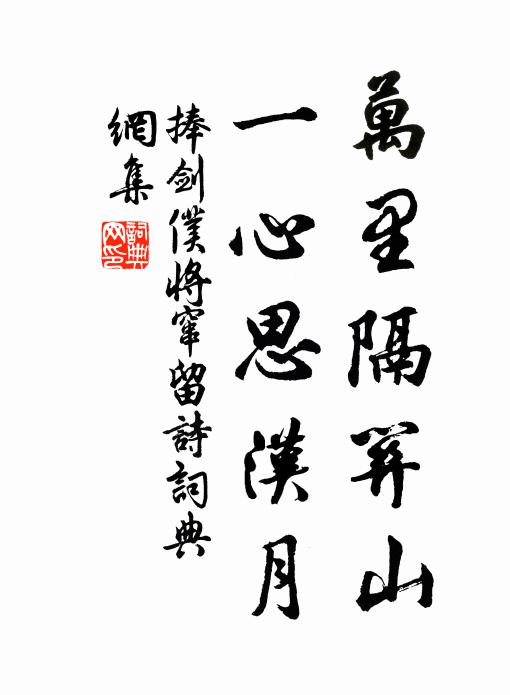 萬里隔關山
一心思漢月
捧劍僕將窜留詩詞典
網集
詞典網印